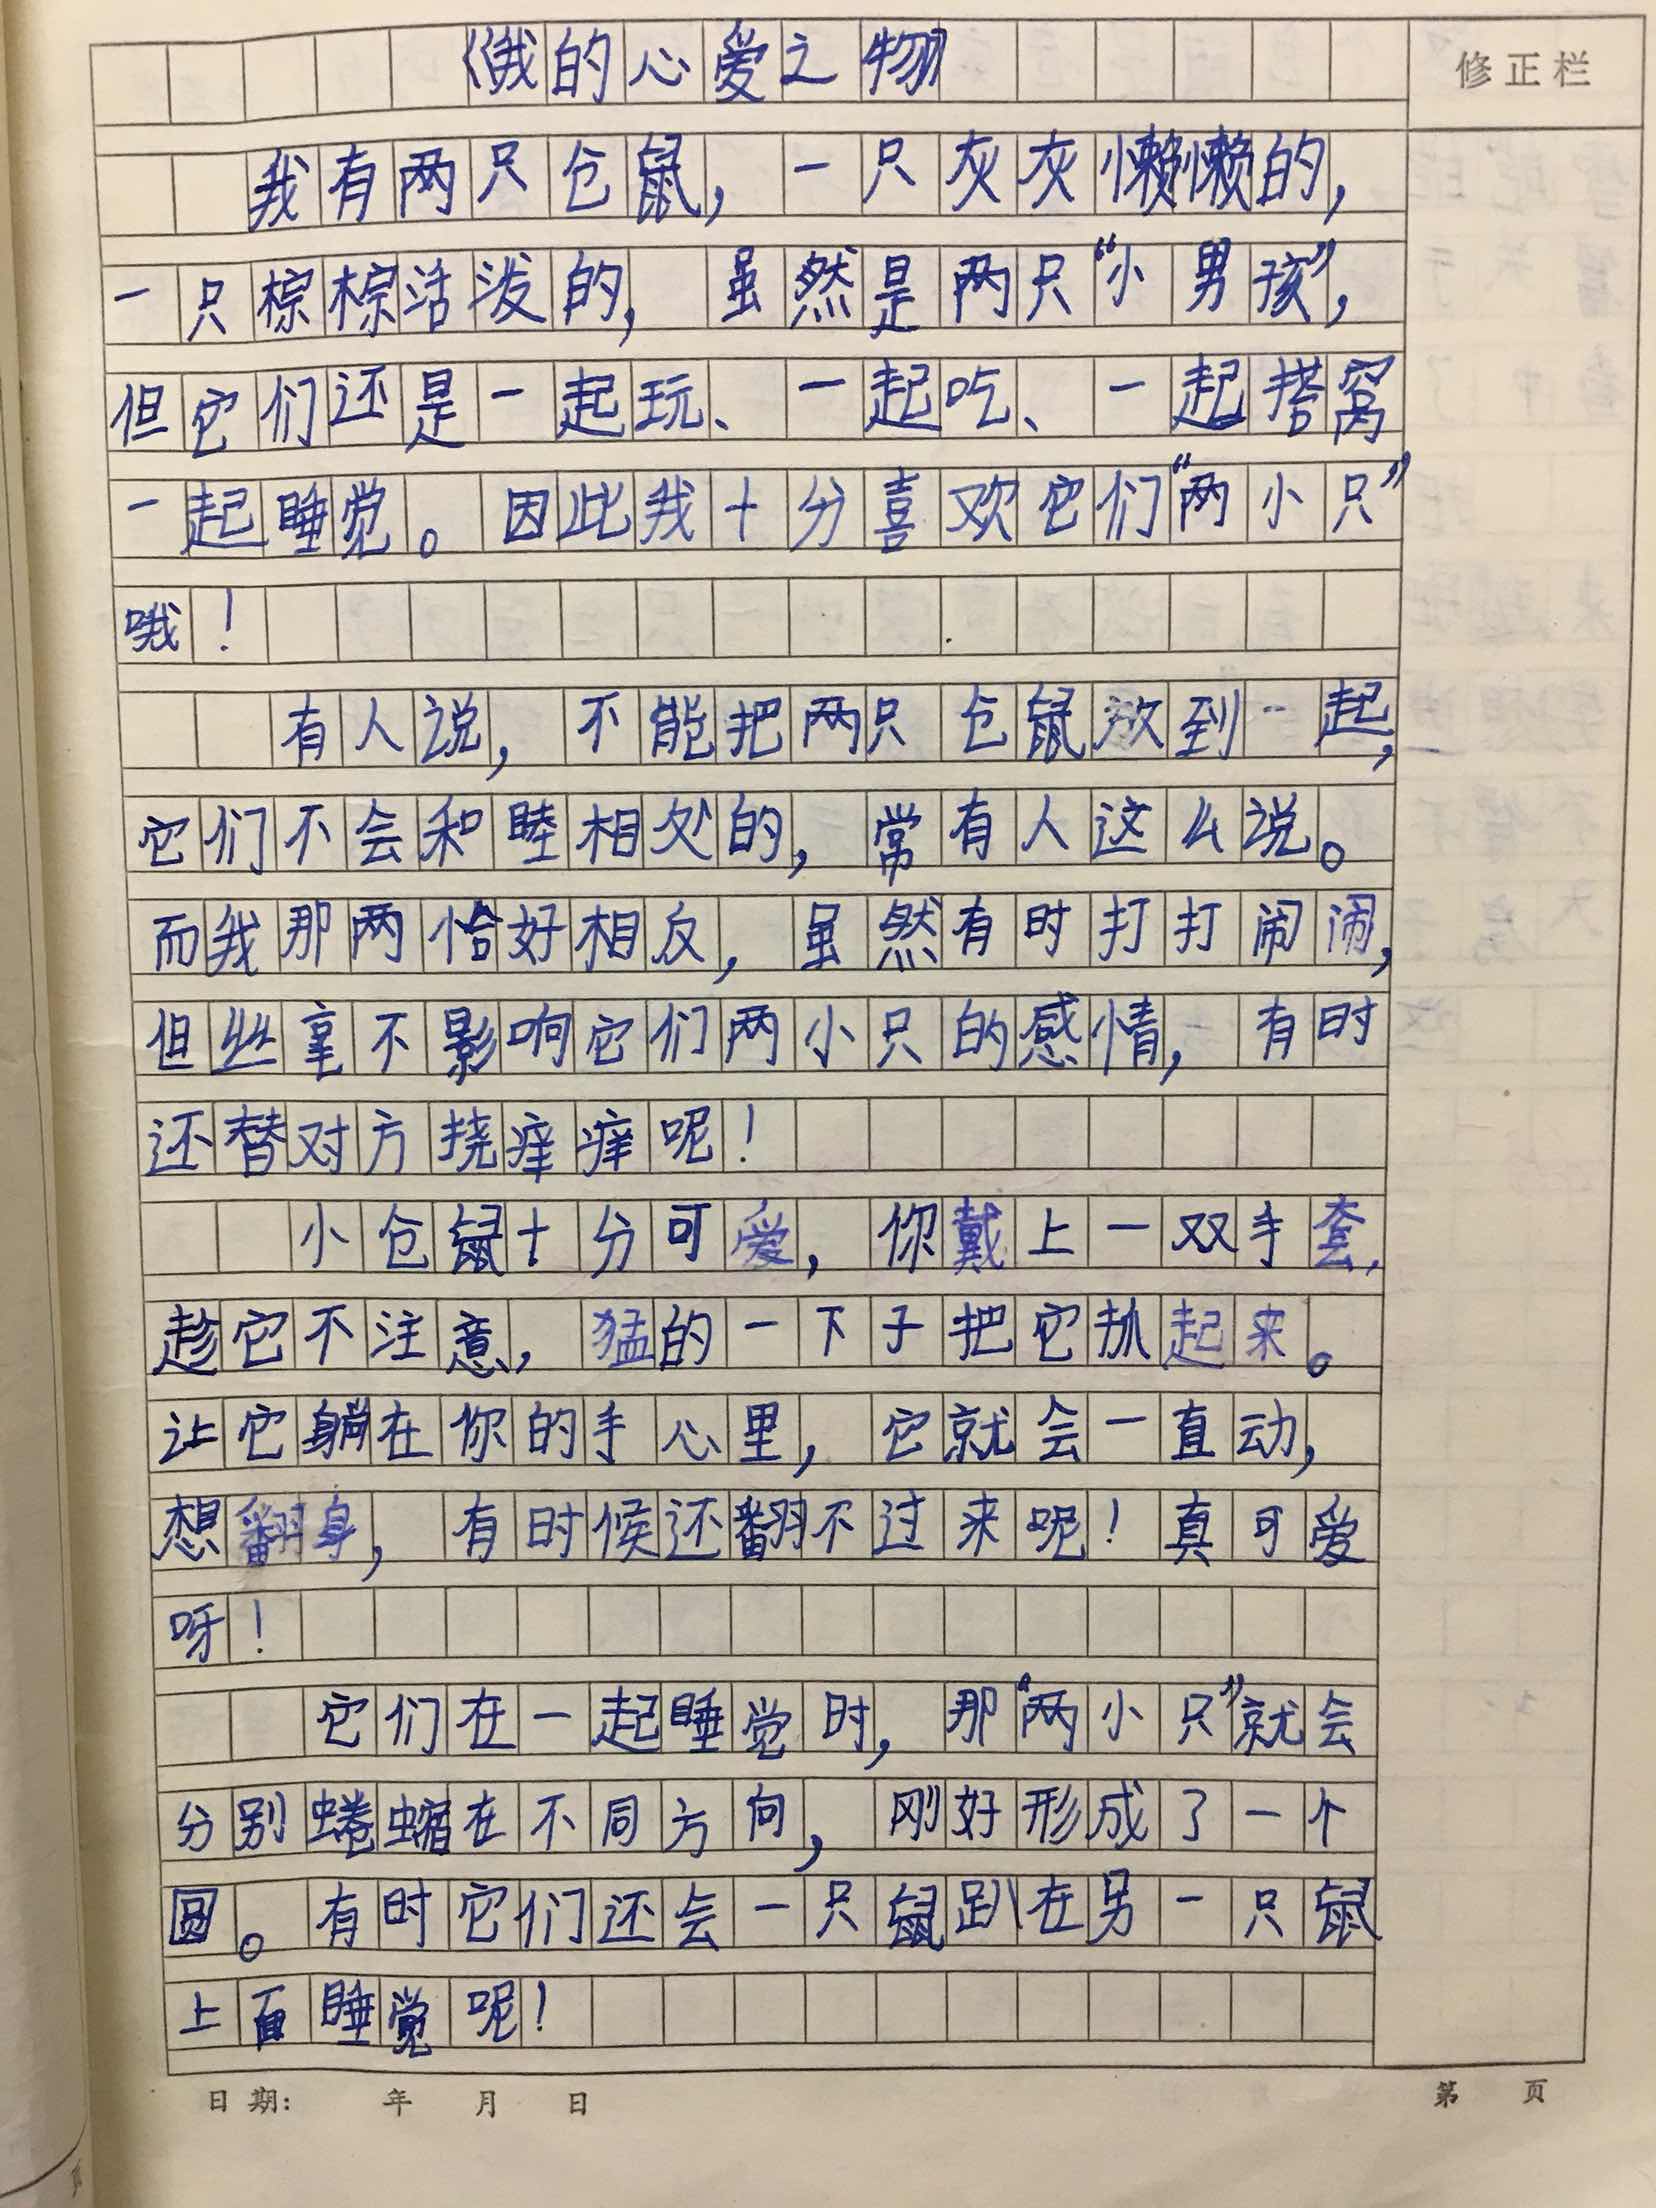 《我的心爱之物》
修正栏
我有两只仓鼠，一只灰灰懒懒的，
一只棕棕活泼的，虽然是两只“小男孩”，
但它们还是一起玩、一起吃、一起搭窝
一起睡觉。因此我十分喜欢它们“两小只”
哦！
有人说，不能把两只仓鼠放到一起，
它们不会和睦相处的，常有人这么说。
而我那两恰好相反，虽然有时打打闹闹，
但丝毫不影响它们两小只的感情，有时
还替对方挠痒痒呢！
小仓鼠十分可爱，你戴上一双手套，
趁它不注意，猛的一下子把它抓起来。
让它躺在你的手心里，它就会一直动，
想翻身，有时候还翻不过来呢！真可爱
呀！
它们在一起睡觉时，那“两小只”就会
分别蜷缩在不同方向，刚好形成了一个
圆。有时它们还会一只鼠趴在另一只鼠
上面睡觉呢！
日期： 年 月 日
第 页